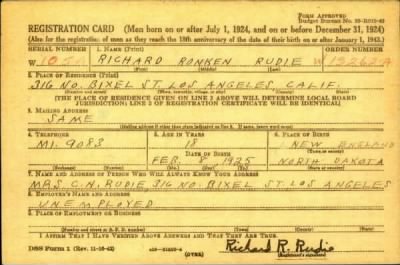 FORM APPROVED
REGISTRATION CARD—(Men born on or after July 1, 1924, and on or before December 31, 1924)
(Also for the registration of men as they reach the 18th anniversary of the date of their birth on or after January 1, 1943.)
SERIAL NUMBER 1. NAME (Print) ORDER NUMBER
W RICHARD RONKEN RUDIE W
(First) (Middle) (Last)
2. PLACE OF RESIDENCE (Print)
316 NO. BIXEL ST. LOS ANGELES CALIF.
(THE PLACE OF RESIDENCE GIVEN ON LINE 2 ABOVE WILL DETERMINE LOCAL BOARD
JURISDICTION; LINE 2 OF REGISTRATION CERTIFICATE WILL BE IDENTICAL)
3. MAILING ADDRESS
SAME
4. TELEPHONE 5. AGE IN YEARS 6. PLACE OF BIRTH
MI. 9083 18 NEW ENGLAND
DATE OF BIRTH
FEB. 8 1925 NORTH DAKOTA
(Exchange) (Number) (Mo.) (Day) (Yr.) (State or country)
7. NAME AND ADDRESS OF PERSON WHO WILL ALWAYS KNOW YOUR ADDRESS
MRS. C. N. RUDIE, 316 NO. BIXEL ST. LOS ANGELES
8. EMPLOYER'S NAME AND ADDRESS
UNEMPLOYED
9. PLACE OF EMPLOYMENT OR BUSINESS
I AFFIRM THAT I HAVE VERIFIED ABOVE ANSWERS AND THAT THEY ARE TRUE.
DSS Form 1 (Rev. 11-16-42) (OVER) Richard R. Rudie